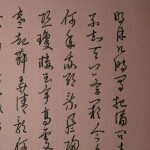 明月几時有把酒問青
不知天上宮闕今夕
何年我欲乘風歸
恐瓊樓玉宇高處不
寒起舞弄清影何